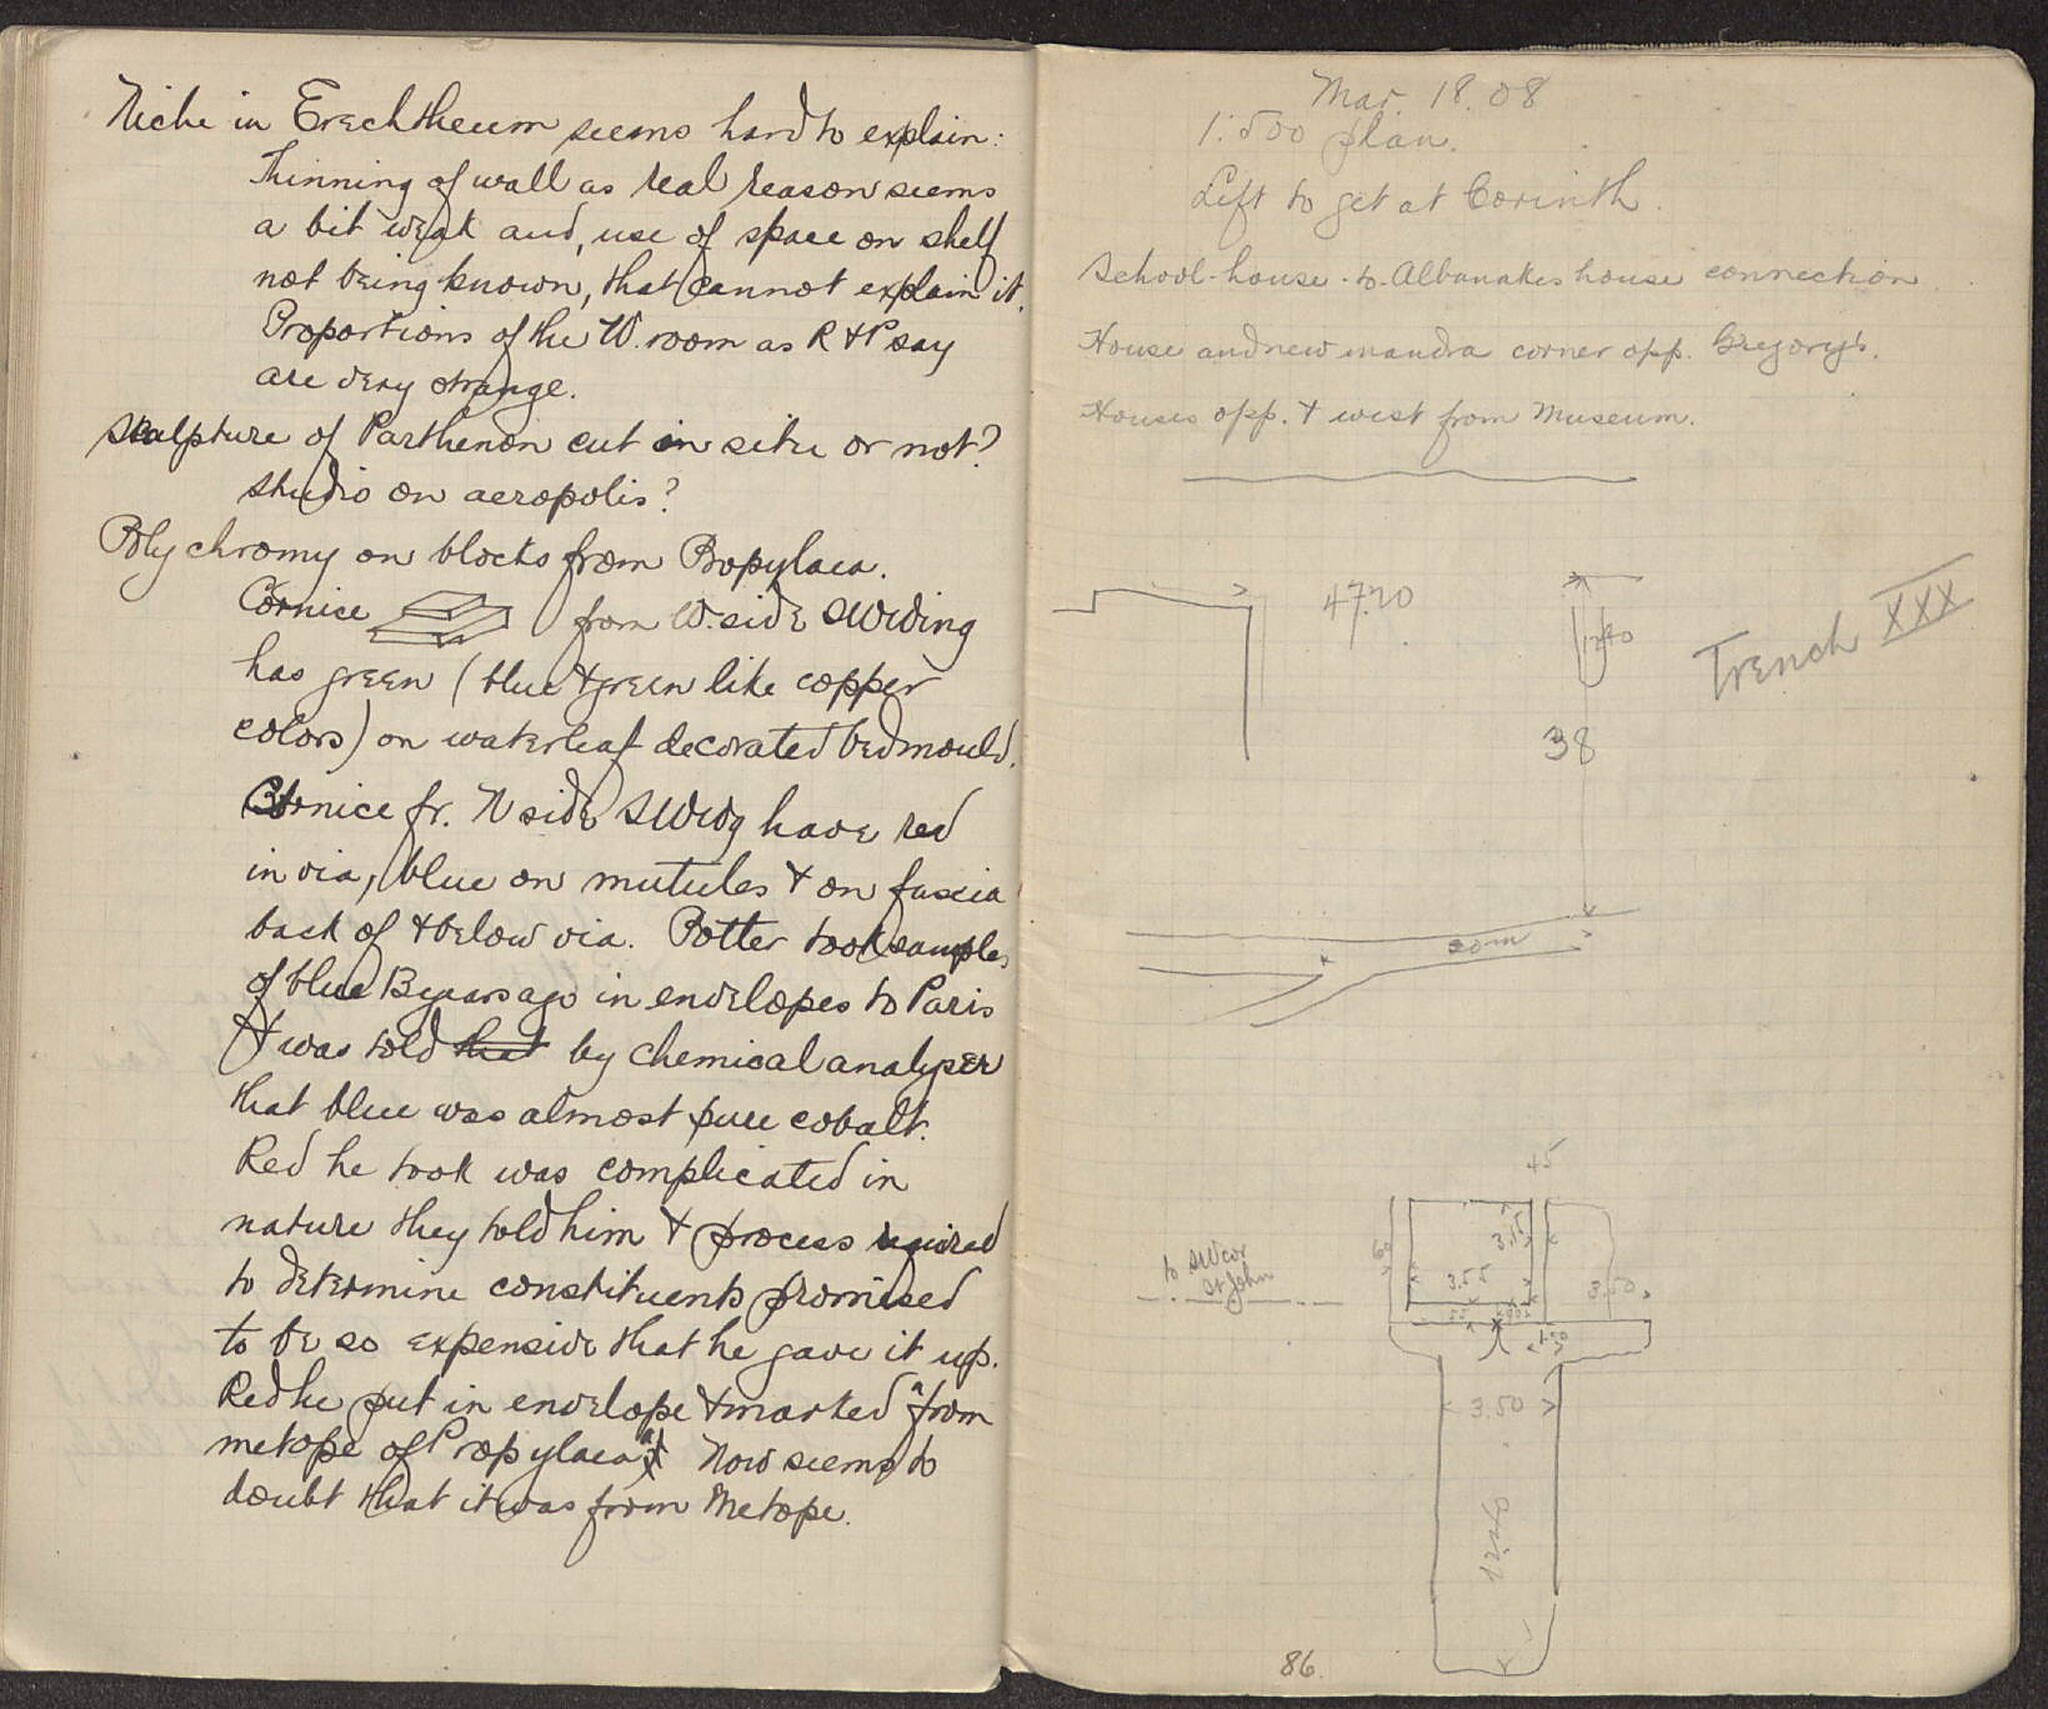 Niche in Erechtheum seems hard to explain:
Thinning of wall as real reason seems
a bit weak and, use of space on shelf
not being known, that cannot explain it.
Proportions of the W. room as R & P say
are very strange.
Sculpture of Parthenon cut in situ or not?
Studio on acropolis?
Polychromy on blocks from Propylaea.
Cornice from W. side SW Wing
has green (blue & green like copper
colors) on waterleaf decorated bedmould.
Cornice fr. N side SW Wg have red
in via, blue on mutules & on fascia
back of & below via. Potter took samples
of blue 13 years ago in envelopes to Paris
& was told that by chemical analyser
that blue was almost pure cobalt.
Red he took was complicated in
nature they told him & process required
to determine constituents promised
to be so expensive that he gave it up.
Red he put in envelope & marked "from
metope of Propylaea" Now seems to
doubt that it was from Metope.
Mar. 18. 08
1:500 plan.
Left to get at Corinth.
School-house-to-Albanakes house connection
House and new mandra corner opp. Gregory's.
Houses opp. & west from Museum.
47.20
Trench XXX
38
20m
45
60
3.15
to SW cor
St John
3.55
3.50
55
1.50
3.50
86.